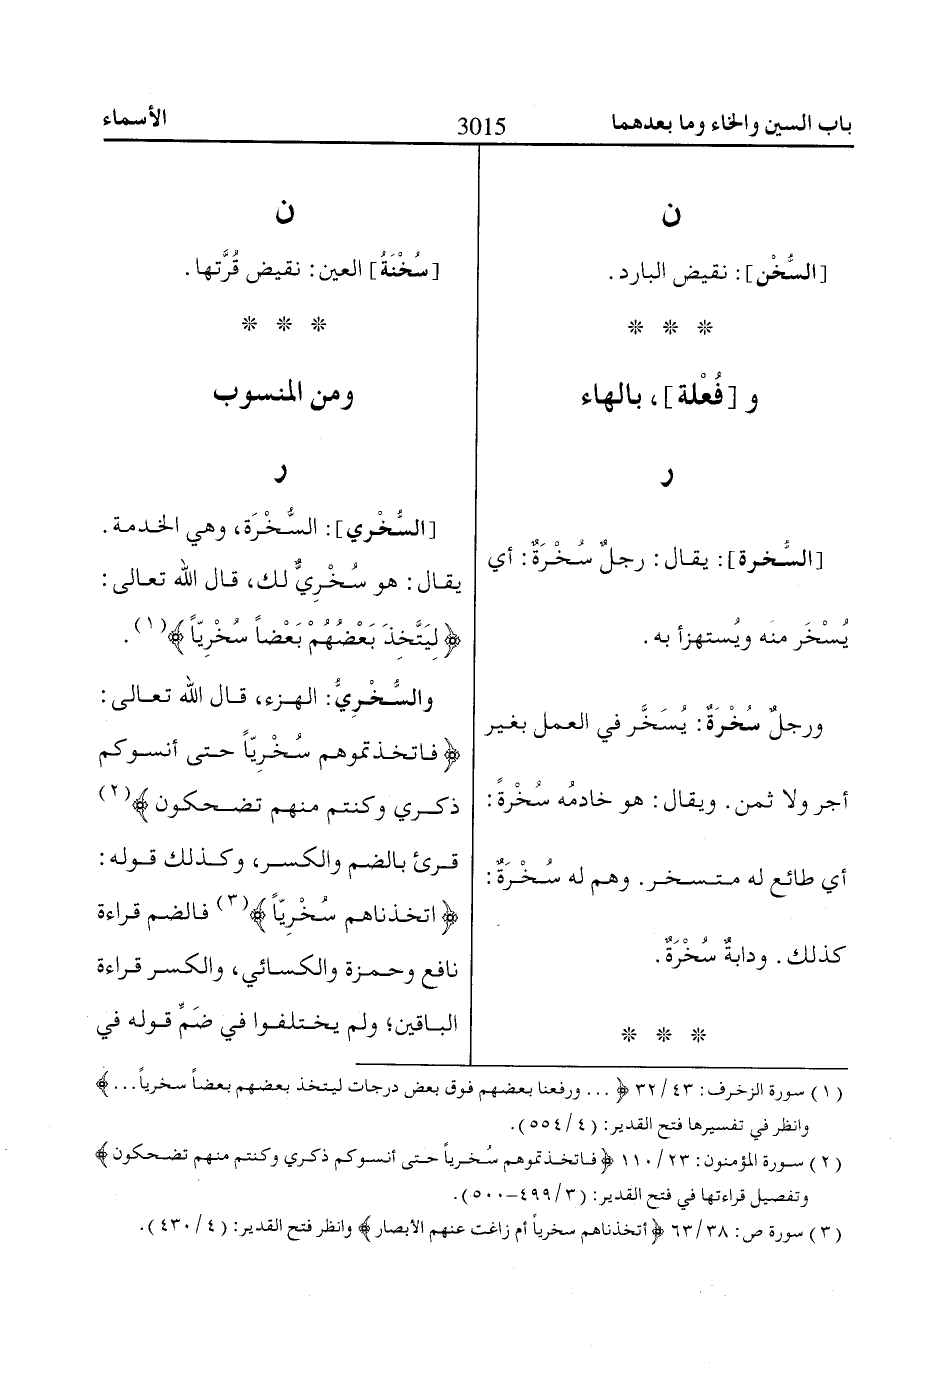 باب السين والخاء وما بعدهما
3015
الأسماء
ن
[السُّخْن]: نقيض البارد.
* * *
و [فُعْلة]، بالهاء
ر
[السُّخرة]: يقال: رجلٌ سُخْرَةٌ: أي
يُسْخَر منه ويُستهزأ به.
ورجلٌ سُخْرَةٌ: يُسَخَّر في العمل بغير
أجر ولا ثمن. ويقال: هو خادمُه سُخْرةً:
أي طائع له متسخر. وهم له سُخْرَةٌ:
كذلك. ودابةٌ سُخْرَةٌ.
* * *
ن
[سُخْنَةُ] العين: نقيض قُرَّتها.
* * *
ومن المنسوب
ر
[السُّخْري]: السُّخْرَة، وهي الخدمة.
يقال: هو سُخْريٌّ لك، قال الله تعالى:
﴿لِيَتَّخِذَ بَعْضُهُمْ بَعْضاً سُخْرِيّاً﴾(١).
والسُّخْرِيُّ: الهزء، قال الله تعالى:
﴿فاتخذتموهم سُخْرِيّاً حتى أنسوكم
ذكري وكنتم منهم تضحكون﴾(٢)
قرئ بالضم والكسر، وكذلك قوله:
﴿اتخذناهم سُخْرِيّاً﴾(٣) فالضم قراءة
نافع وحمزة والكسائي، والكسر قراءة
الباقين؛ ولم يختلفوا في ضَمِّ قوله في
(١) سورة الزخرف: ٤٣/ ٣٢ ﴿... ورفعنا بعضهم فوق بعض درجات ليتخذ بعضهم بعضاً سخرياً...﴾
وانظر في تفسيرها فتح القدير: (٤/ ٥٥٤).
(٢) سورة المؤمنون: ٢٣/ ١١٠ ﴿فاتخذتموهم سُخرياً حتى أنسوكم ذكري وكنتم منهم تضحكون﴾
وتفصيل قراءتها في فتح القدير: (٣/ ٤٩٩-٥٠٠).
(٣) سورة ص: ٣٨/ ٦٣ ﴿أتخذناهم سخرياً أم زاغت عنهم الأبصار﴾ وانظر فتح القدير: (٤/ ٤٣٠).